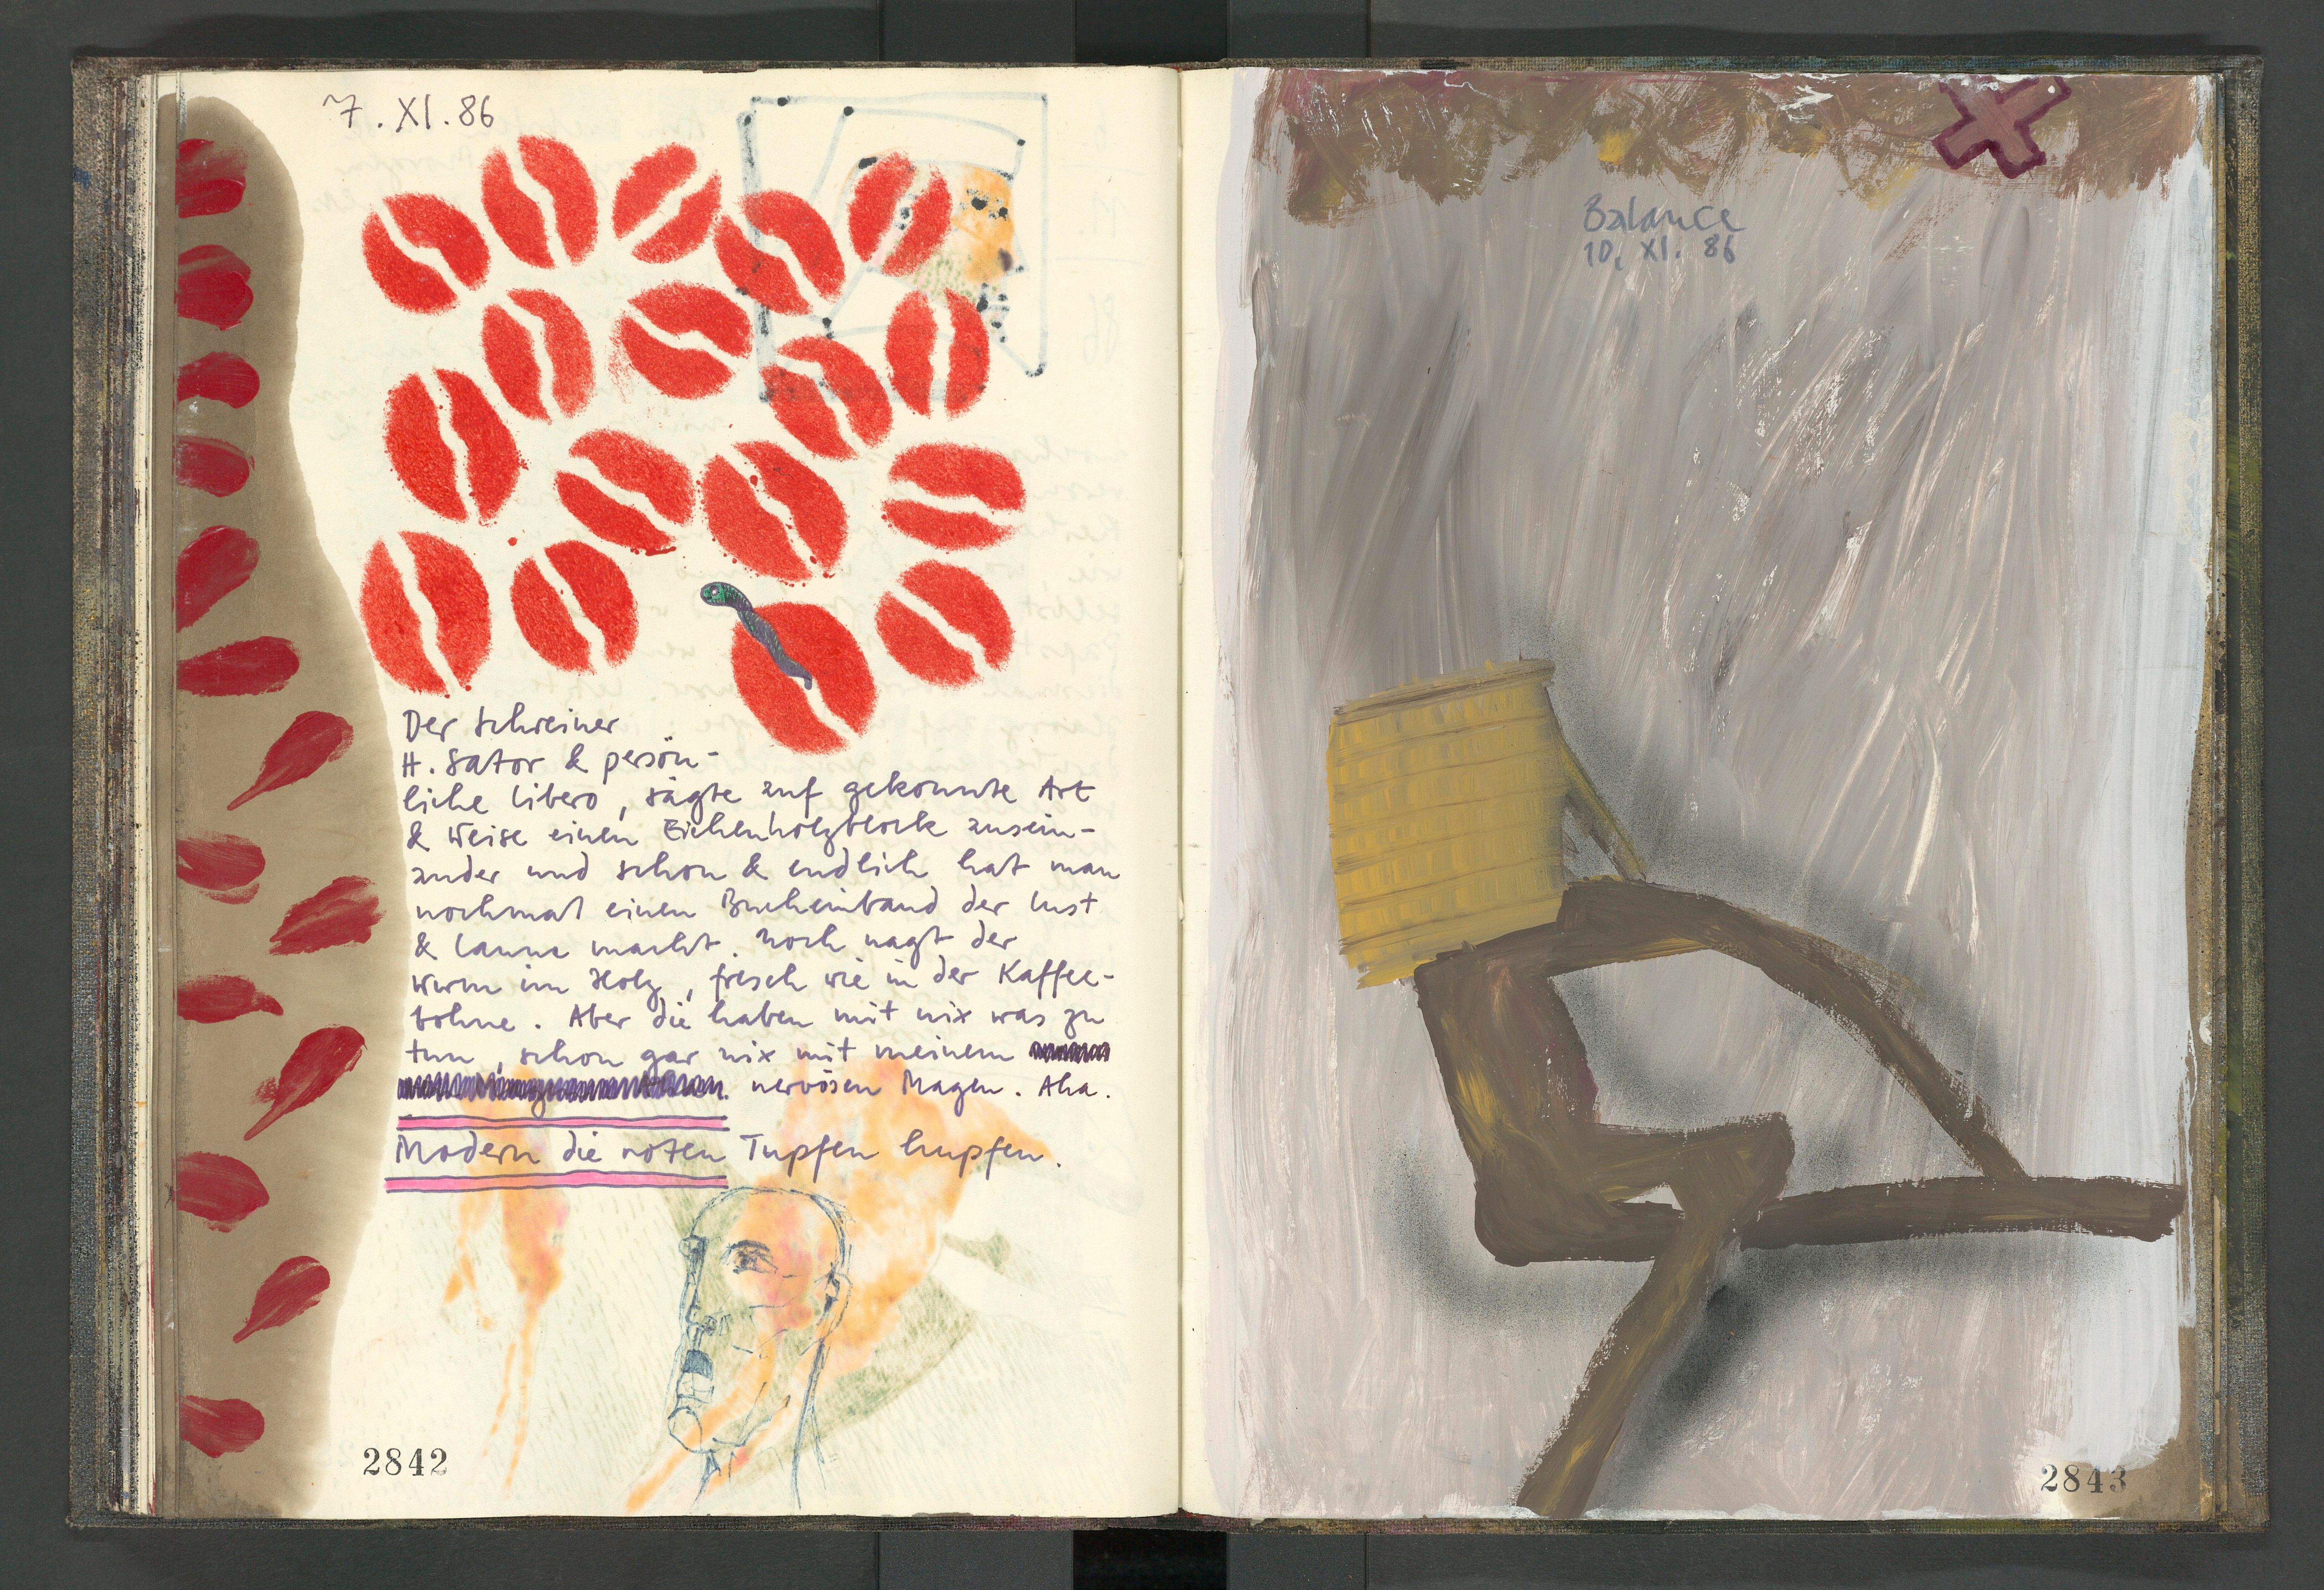 7. XI. 86
Der Schreiner
H. Sator & persön-
liche Libero, sägte auf gekonnte Art
& Weise einen Eichenholzblock ausein-
ander und schon & endlich hat man
nochmal einen Bucheinband der Lust
& Laune macht. Noch nagt der
Wurm im Holz, frisch wie in der Kaffee-
bohne. Aber die haben mit nix was zu
tun, schon gar nix mit meinem
nervösen Magen. Aha.
Modern die roten Tupfen hupfen.
2842
Balance
10. XI. 86
2843